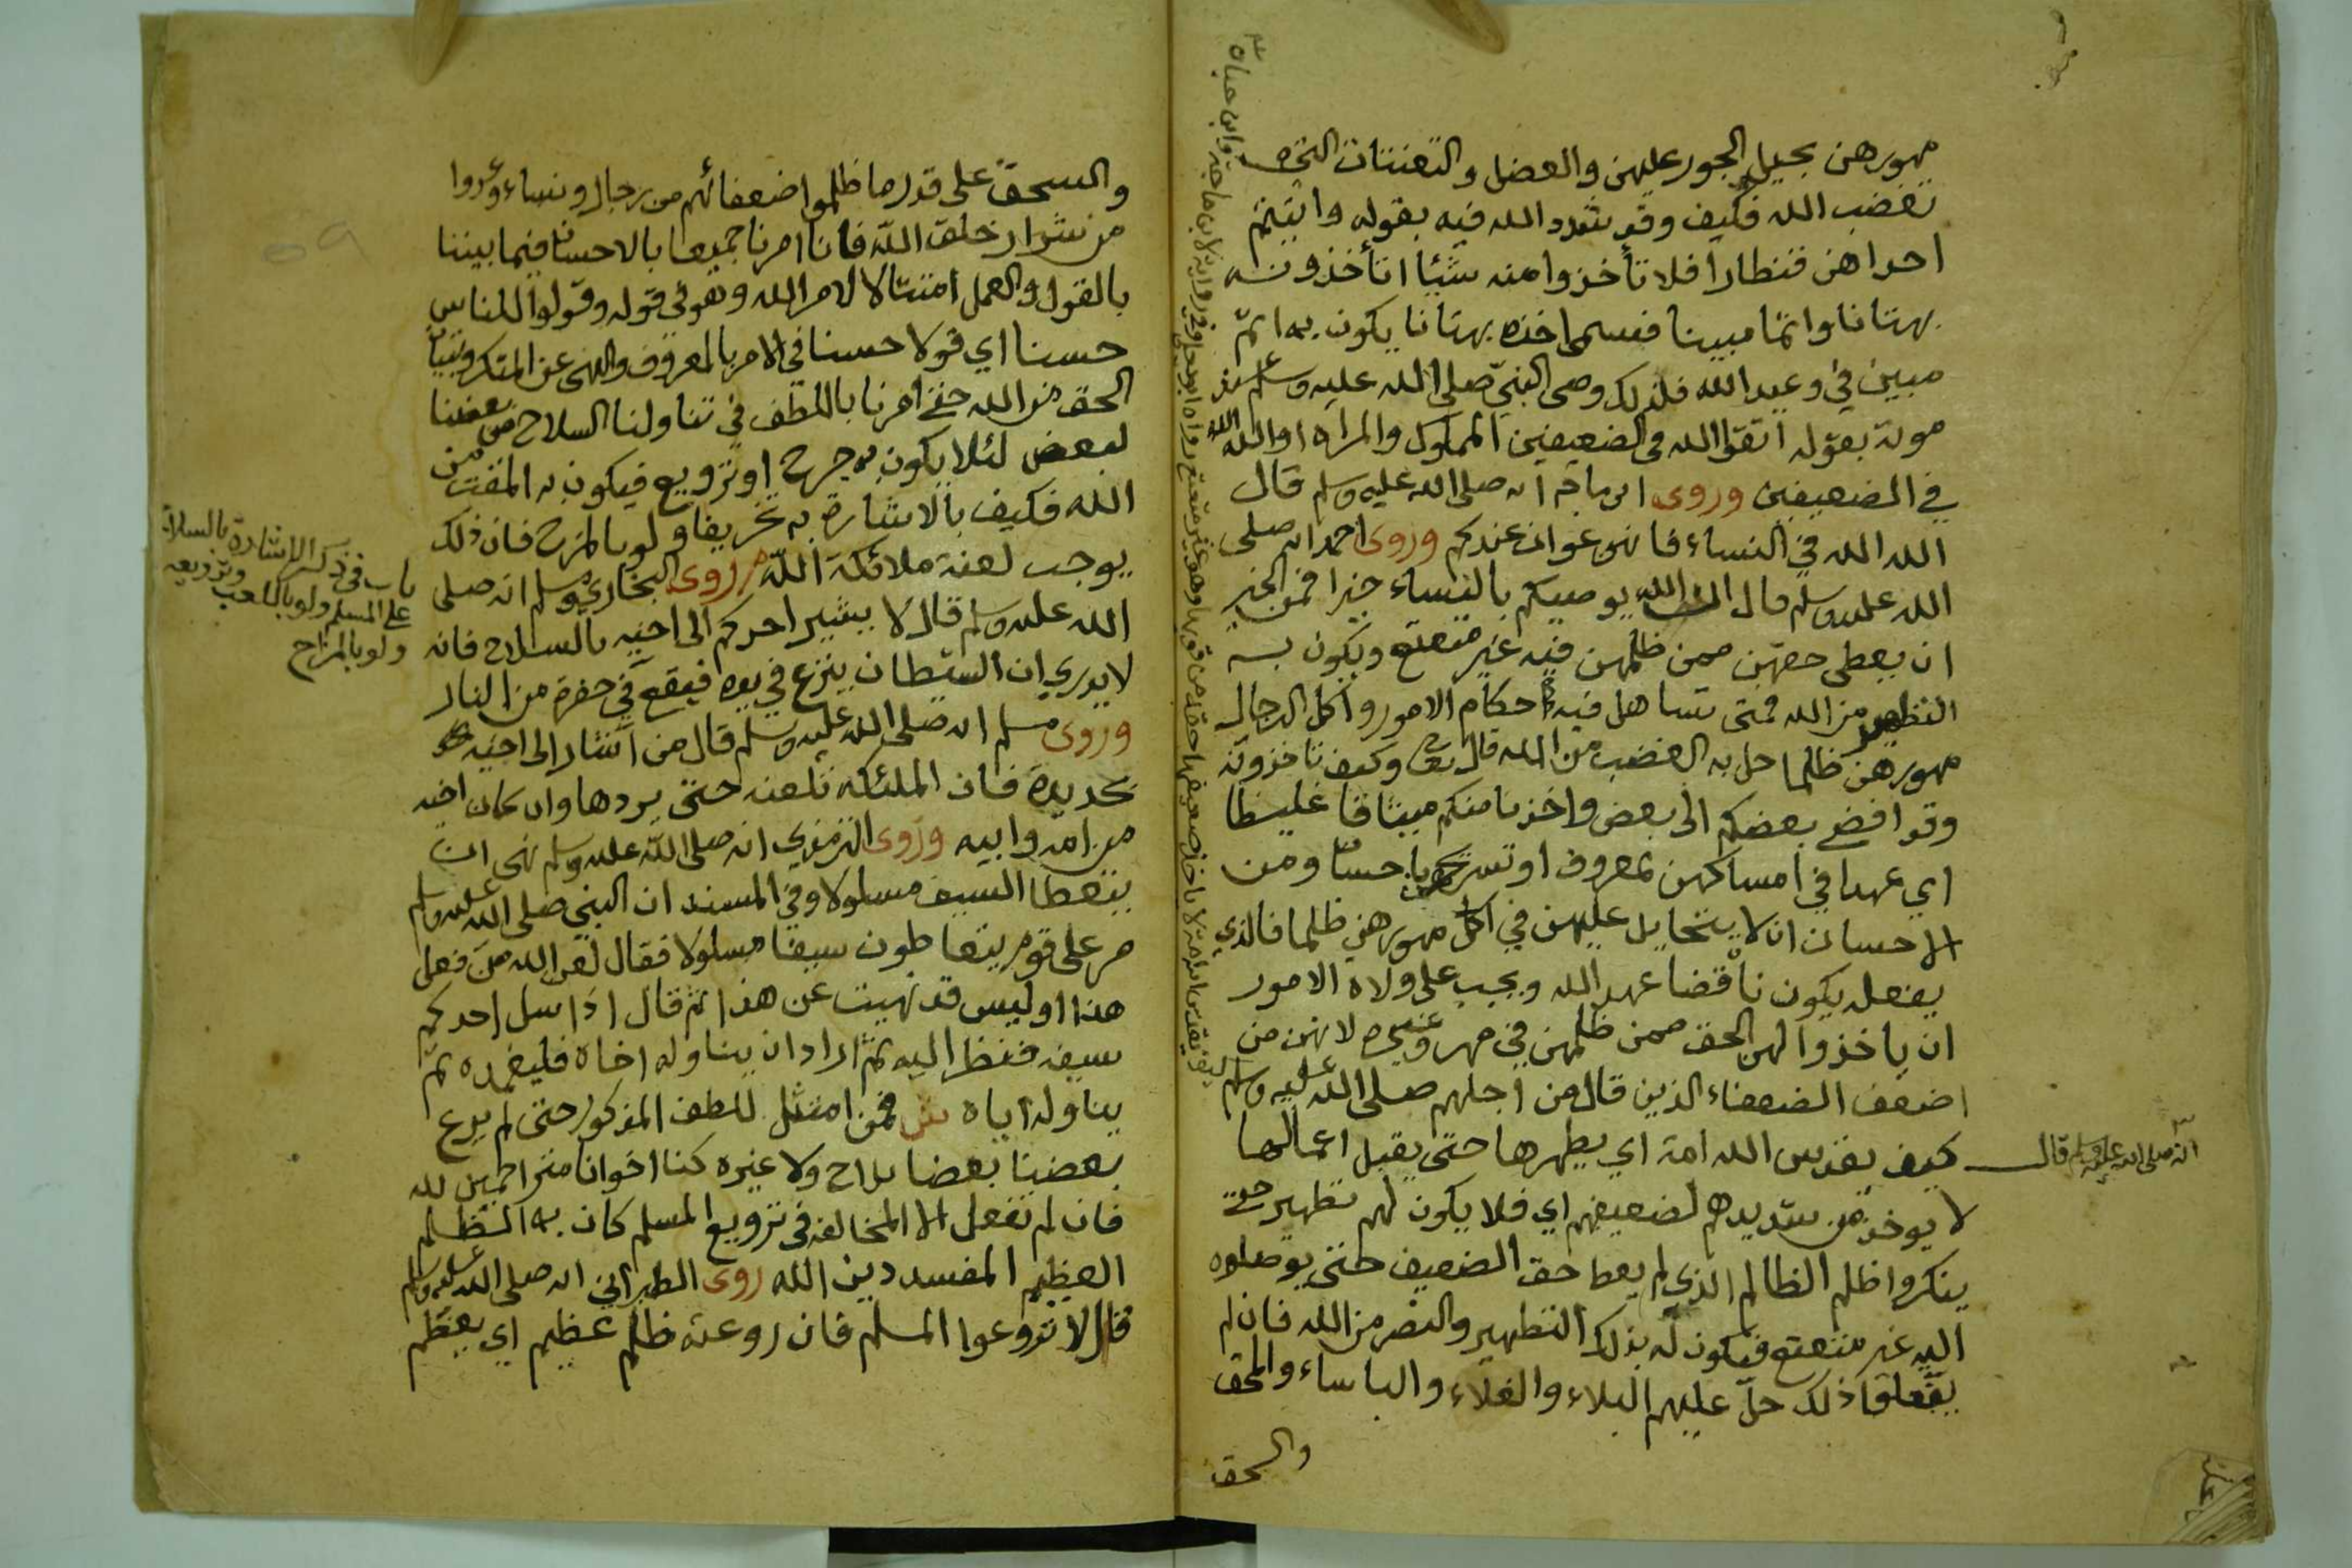 مهورهن بحيل الجور عليهن والعضل والتعنتات التي
تغضب الله فكيف وقد شدد الله فيه بقوله وآتيتم
احداهن قنطارا فلا تأخذوا منه شيئا اتأخذونه
بهتانا واثما مبينا فسمى اخذه بهتانا يكون به اثم
مبين في وعيد الله فلذلك وصى النبي صلى الله عليه وسلم عند
موته بقوله اتقوا الله في الضعيفين المملوك والمراه او الله الله
في الضعيفين وروى ابن ماجه انه صلى الله عليه وسلم قال
الله الله في النساء فانهن عوان عندكم وروى احمد انه صلى
الله عليه وسلم قال ان الله يوصيكم بالنساء خيرا فمن الخير
ان يعطى حقهن ممن ظلمهن فيه غير متعتع ويكون به
التطهير من الله فمتى تساهل فيه حكام الامور واكل الرجال
مهورهن ظلما حل به الغضب من الله قال تعالى وكيف تأخذونه
وقد افضى بعضكم الى بعض واخذنا منكم ميثاقا غليظا
اي عهدا في امساكهن بمعروف او تسريحهن باحسان ومن
الاحسان ان لا يتحايل عليهن في اكل مهورهن ظلما فالذي
يفعله يكون ناقضا عهد الله ويجب على ولاة الامور
ان ياخذوا لهن الحق ممن ظلمهن في مهر وغيره لانهن من
اضعف الضعفاء الذين قال من اجلهم صلى الله عليه وسلم
كيف يقدس الله امة اي يطهرها حتى يقبل اعمالها
لا يوخذ من شديدهم لضعيفهم اي فلا يكون لهم تطهير حتى
ينكروا ظلم الظالم الذي لم يعط حق الضعيف حتى يوصلوه
اليه غير متعتع فيكون له بذلك التطهير والنصر من الله فان لم
يفعلوا ذلك حل عليهم البلاء والغلاء والباساء والمحق
والسحق
انه صلى الله عليه وسلم قال
والسحق على قدر ما ظلموا ضعفائهم من رجال ونساء وعدوا
من شرار خلق الله فانا امرنا جميعا بالاحسان فيما بيننا
بالقول والعمل امتثالا لامر الله وهو في قوله وقولوا للناس
حسنا اي قولا حسنا في الامر بالمعروف والنهي عن المنكر وتبيان
الحق من الله حتى امرنا باللطف في تناولنا السلاح من بعضنا
لبعض لئلا يكون به جرح او ترويع فيكون به المقت من
الله فكيف بالاشارة به تخريفا ولو بالمزح فان ذلك
يوجب لعنة ملائكة الله روى البخاري ومسلم انه صلى
الله عليه وسلم قال لا يشير احدكم الى اخيه بالسلاح فانه
لا يدري ان الشيطان ينزع في يده فيقع في حفرة من النار
وروى مسلم انه صلى الله عليه وسلم قال من اشار الى اخيه
بحديدة فان الملئكه تلعنه حتى يردها وان كان اخيه
من امه وابيه وروى الترمذي انه صلى الله عليه وسلم نهى ان
يتعطا السيف مسلولا وفي المسند ان النبي صلى الله عليه وسلم
مر على قوم يتعاطون سيفا مسلولا فقال لعن الله من فعل
هذا اوليس قد نهيت عن هذا ثم قال اذا سل احدكم
سيفه فنظر اليه ثم اراد ان يناوله اخاه فليغمده ثم
يناوله اياه فمن امتثل للطف المذكور حتى لم يرع
بعضنا بعضا بلاح ولا غيره كنا اخوانا متراحمين لله
فان لم نفعل الا المخالفه في ترويع المسلم كان به الظلم
العظيم المفسد دين الله روى الطبراني انه صلى الله عليه وسلم
قال لا تروعوا المسلم فان روعته ظلم عظيم اي يعظم
باب في ذكر الاشارة بالسلاح
وترويعه
على المسلم ولو باللعب
ولو بالمزاح